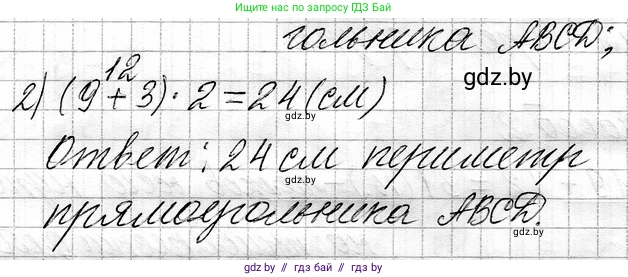 Пишите нам по запросу ГДЗ БАЙ
гольника ABCD;
gdz.by
12
2) (9 + 3) · 2 = 24 (см)
gdz.by
Ответ: 24 см периметр
gdz.by
прямоугольника ABCD.
gdz.by // гдз бай // гдз by